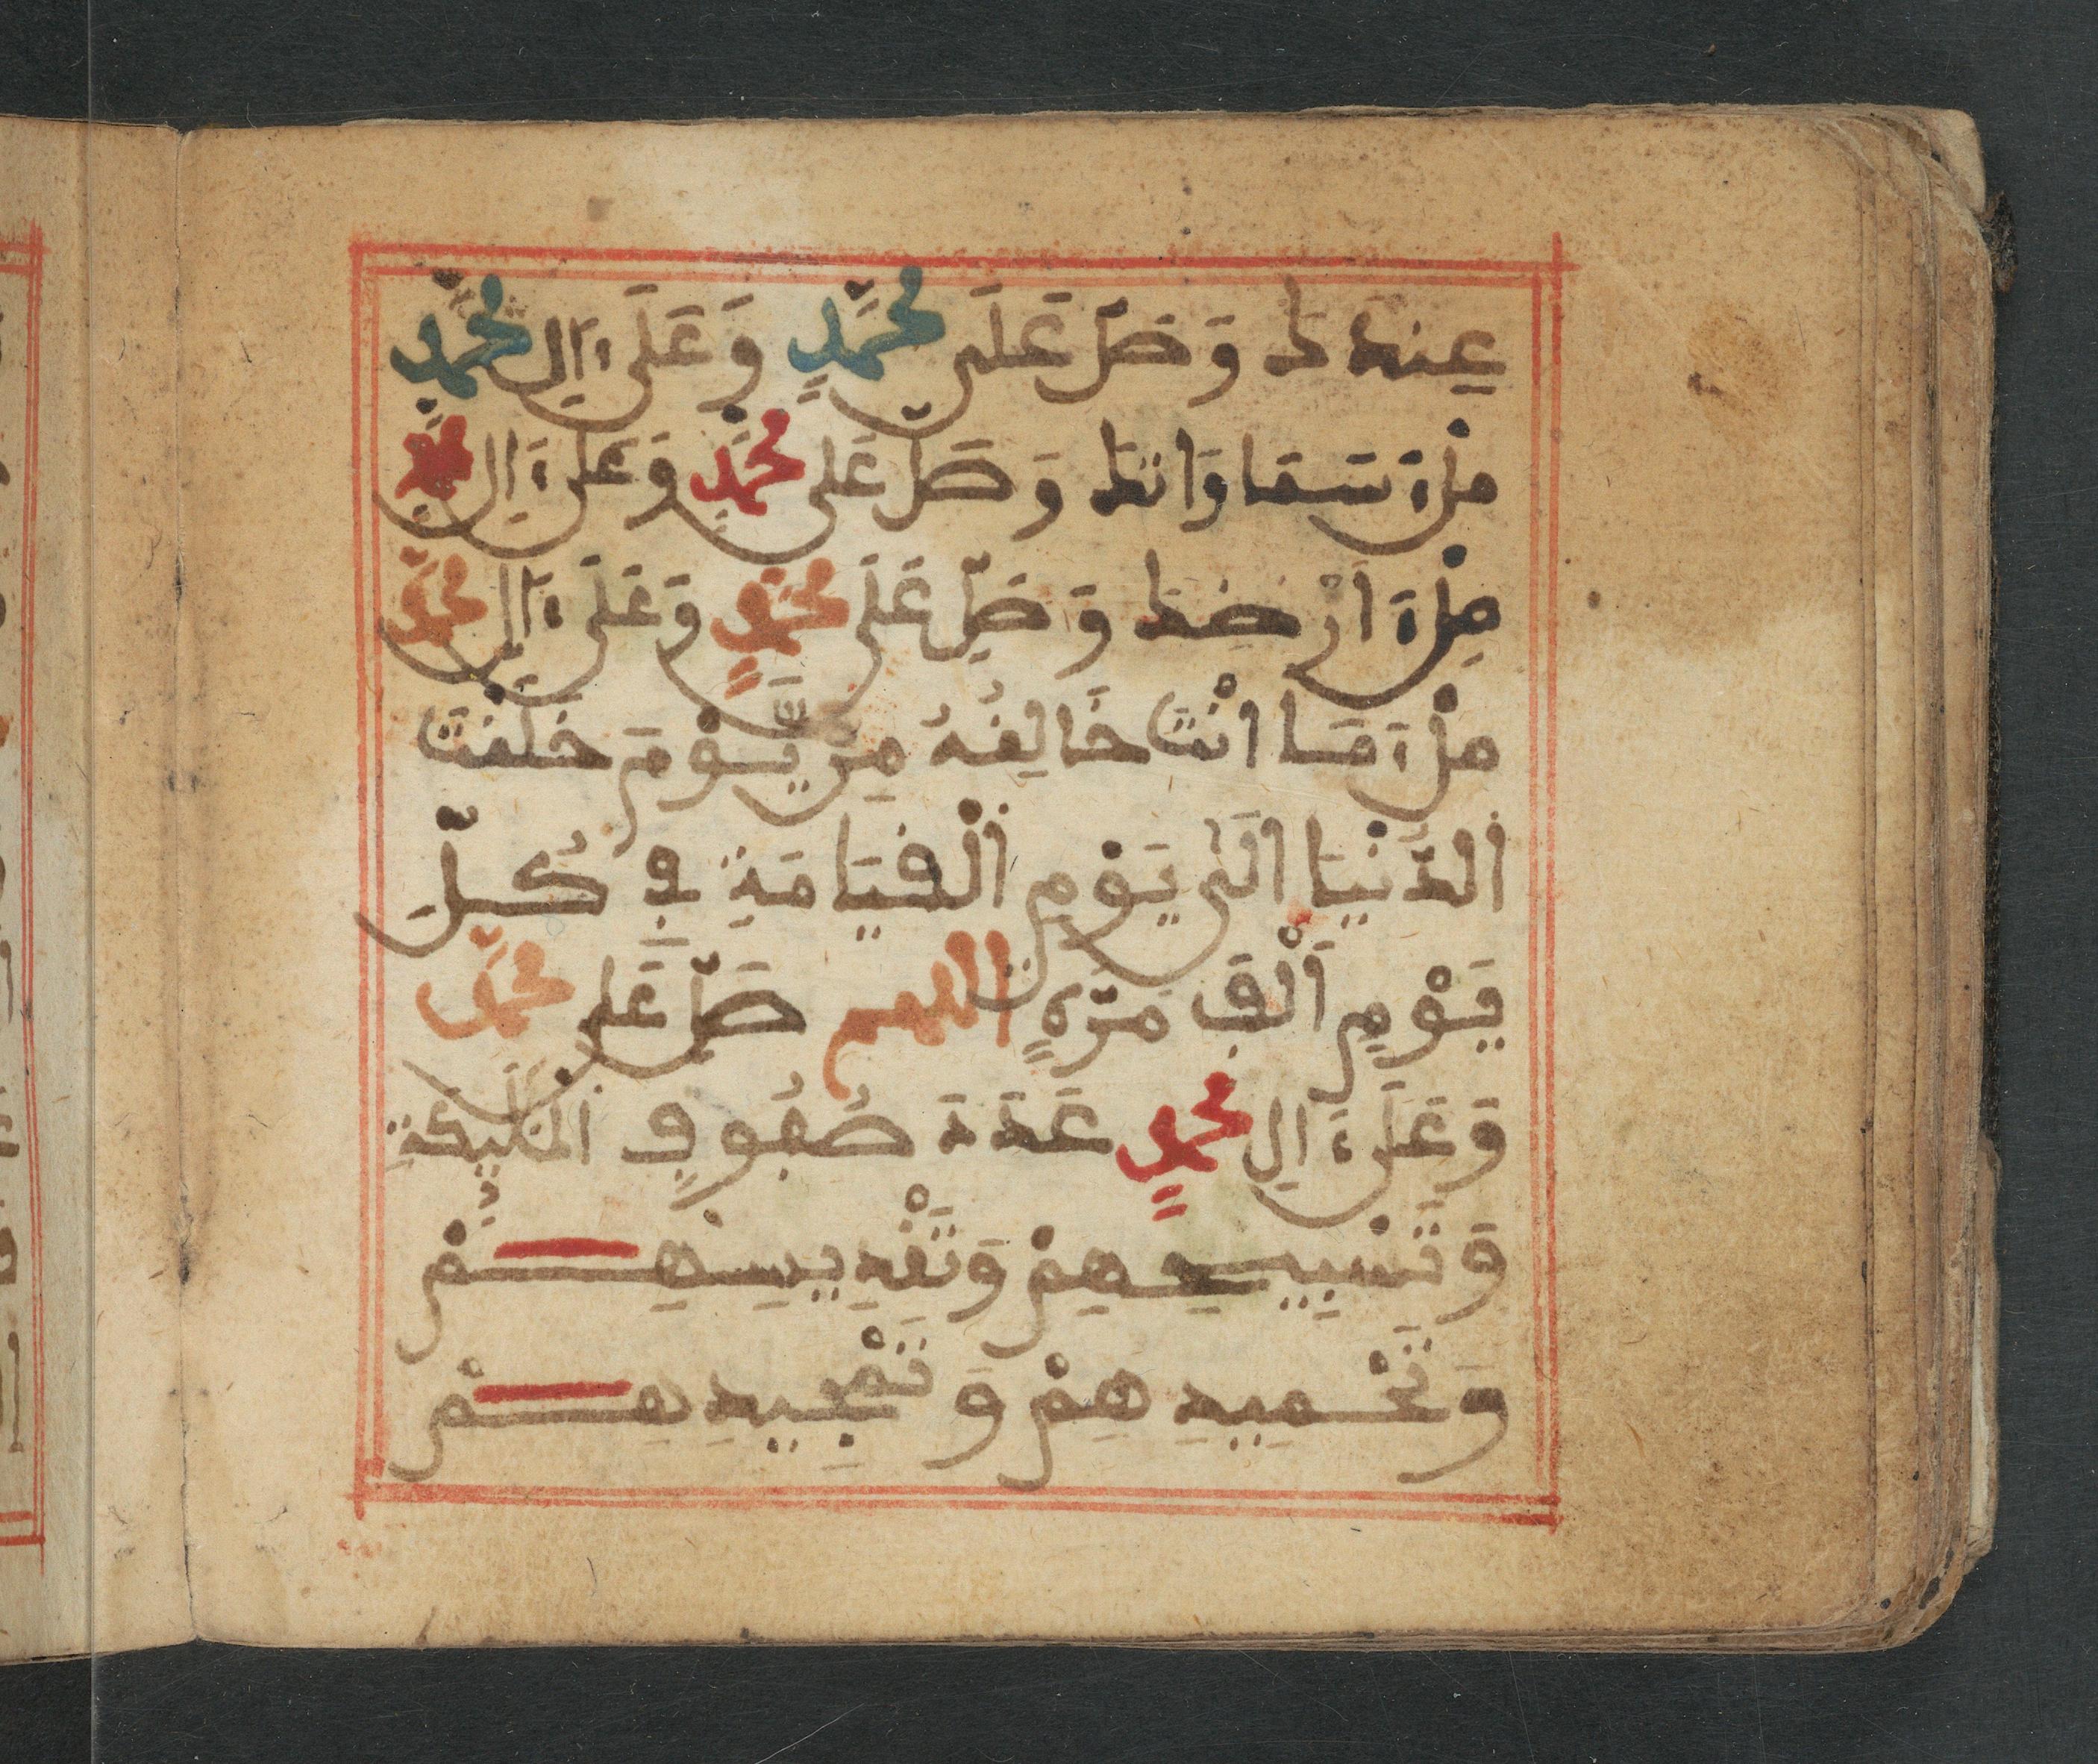 عِندَكَ وَصَلِّ عَلَى مُحَمَّدٍ وَعَلَىٰ ءَالِ مُحَمَّدٍ
مِلْءَ سَمَاوَاتِكَ وَصَلِّ عَلَى مُحَمَّدٍ وَعَلَىٰ ءَالِ مُحَمَّدٍ
مِلْءَ اَرْضِكَ وَصَلِّ عَلَى مُحَمَّدٍ وَعَلَىٰ ءَالِ مُحَمَّدٍ
مِلْءَ مَا اَنْتَ خَالِڧُهُ مِن يَّوْمَ خَلَڧْتَ
الدُّنْيَا اِلَىٰ يَوْمِ الْڧِيَامَةِ فِے كُلِّ
يَوْمٍ اَلْڢَ مَرَّةٍ اللهم صَلِّ عَلَى مُحَمَّد
وَعَلَىٰ ءَالِ مُحَمَّدٍ عَدَدَ صُڢُوڢِ الْمَلَٰٓئِكَةِ
وَتَسْبِيحِهِمْ وَتَڧْدِيسِهِمْ
وَتَحْمِيدِهِمْ وَتَمْجِيدِهِمْ